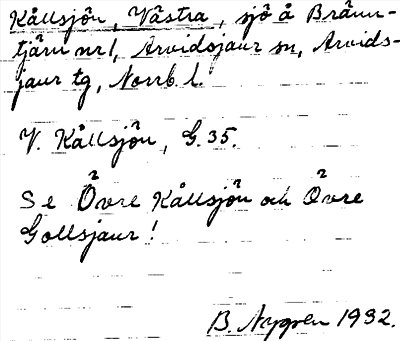 Kållsjön, Västra, sjö å Bränn-
tjärn nr 1, Arvidsjaur sn, Arvids-
jaur tg, Norrb. l.
V. Kållsjön, G. 35.
Se Övre Kållsjön och Övre
Gollsjaur!
B. Nygren 1932.